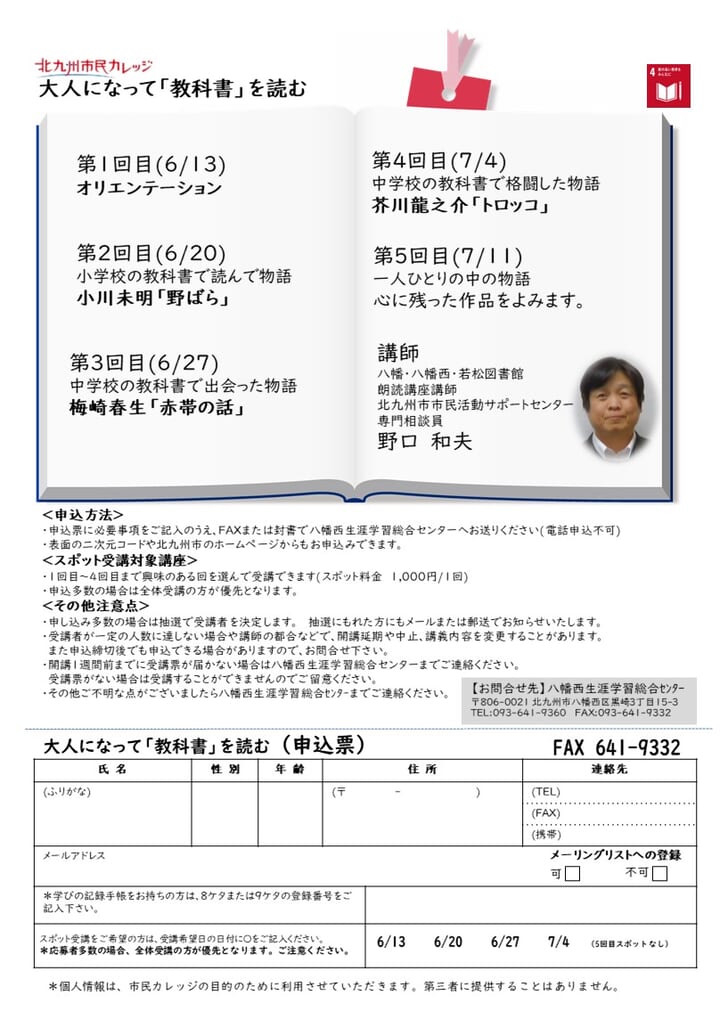 北九州市民カレッジ
大人になって「教科書」を読む
4 質の高い教育を
みんなに
第1回目(6/13)
オリエンテーション
第2回目(6/20)
小学校の教科書で読んで物語
小川未明「野ばら」
第3回目(6/27)
中学校の教科書で出会った物語
梅崎春生「赤帯の話」
第4回目(7/4)
中学校の教科書で格闘した物語
芥川龍之介「トロッコ」
第5回目(7/11)
一人ひとりの中の物語
心に残った作品をよみます。
講師
八幡・八幡西・若松図書館
朗読講座講師
北九州市市民活動サポートセンター
専門相談員
野口 和夫
<申込方法>
・申込票に必要事項をご記入のうえ、FAXまたは封書で八幡西生涯学習総合センターへお送りください(電話申込不可)
・表面の二次元コードや北九州市のホームページからもお申込みできます。
<スポット受講対象講座>
・1回目～4回目まで興味のある回を選んで受講できます(スポット料金 1,000円/1回)
・申込多数の場合は全体受講の方が優先となります。
<その他注意点>
・申し込み多数の場合は抽選で受講者を決定します。 抽選にもれた方にもメールまたは郵送でお知らせいたします。
・受講者が一定の人数に達しない場合や講師の都合などで、開講延期や中止、講義内容を変更することがあります。
また申込締切後でも申込できる場合がありますので、お問合せ下さい。
・開講1週間前までに受講票が届かない場合は八幡西生涯学習総合センターまでご連絡ください。
受講票がない場合は受講することができませんのでご留意ください。
・その他ご不明な点がございましたら八幡西生涯学習総合ｾﾝﾀｰまでご連絡ください。
【お問合せ先】八幡西生涯学習総合ｾﾝﾀｰ
〒806-0021 北九州市八幡西区黒崎3丁目15-3
TEL:093-641-9360 FAX:093-641-9332
大人になって「教科書」を読む (申込票)
FAX 641-9332
氏 名 性 別 年 齢 住 所 連絡先
(ふりがな)
(〒 - )
(TEL)
(FAX)
(携帯)
メールアドレス
メーリングリストへの登録
可□ 不可□
＊学びの記録手帳をお持ちの方は、8ケタまたは9ケタの登録番号をご
記入下さい。
スポット受講をご希望の方は、受講希望日の日付に○をご記入ください。
＊応募者多数の場合、全体受講の方が優先となります。ご注意ください。
6/13 6/20 6/27 7/4 (5回目スポットなし)
＊個人情報は、市民カレッジの目的のために利用させていただきます。第三者に提供することはありません。